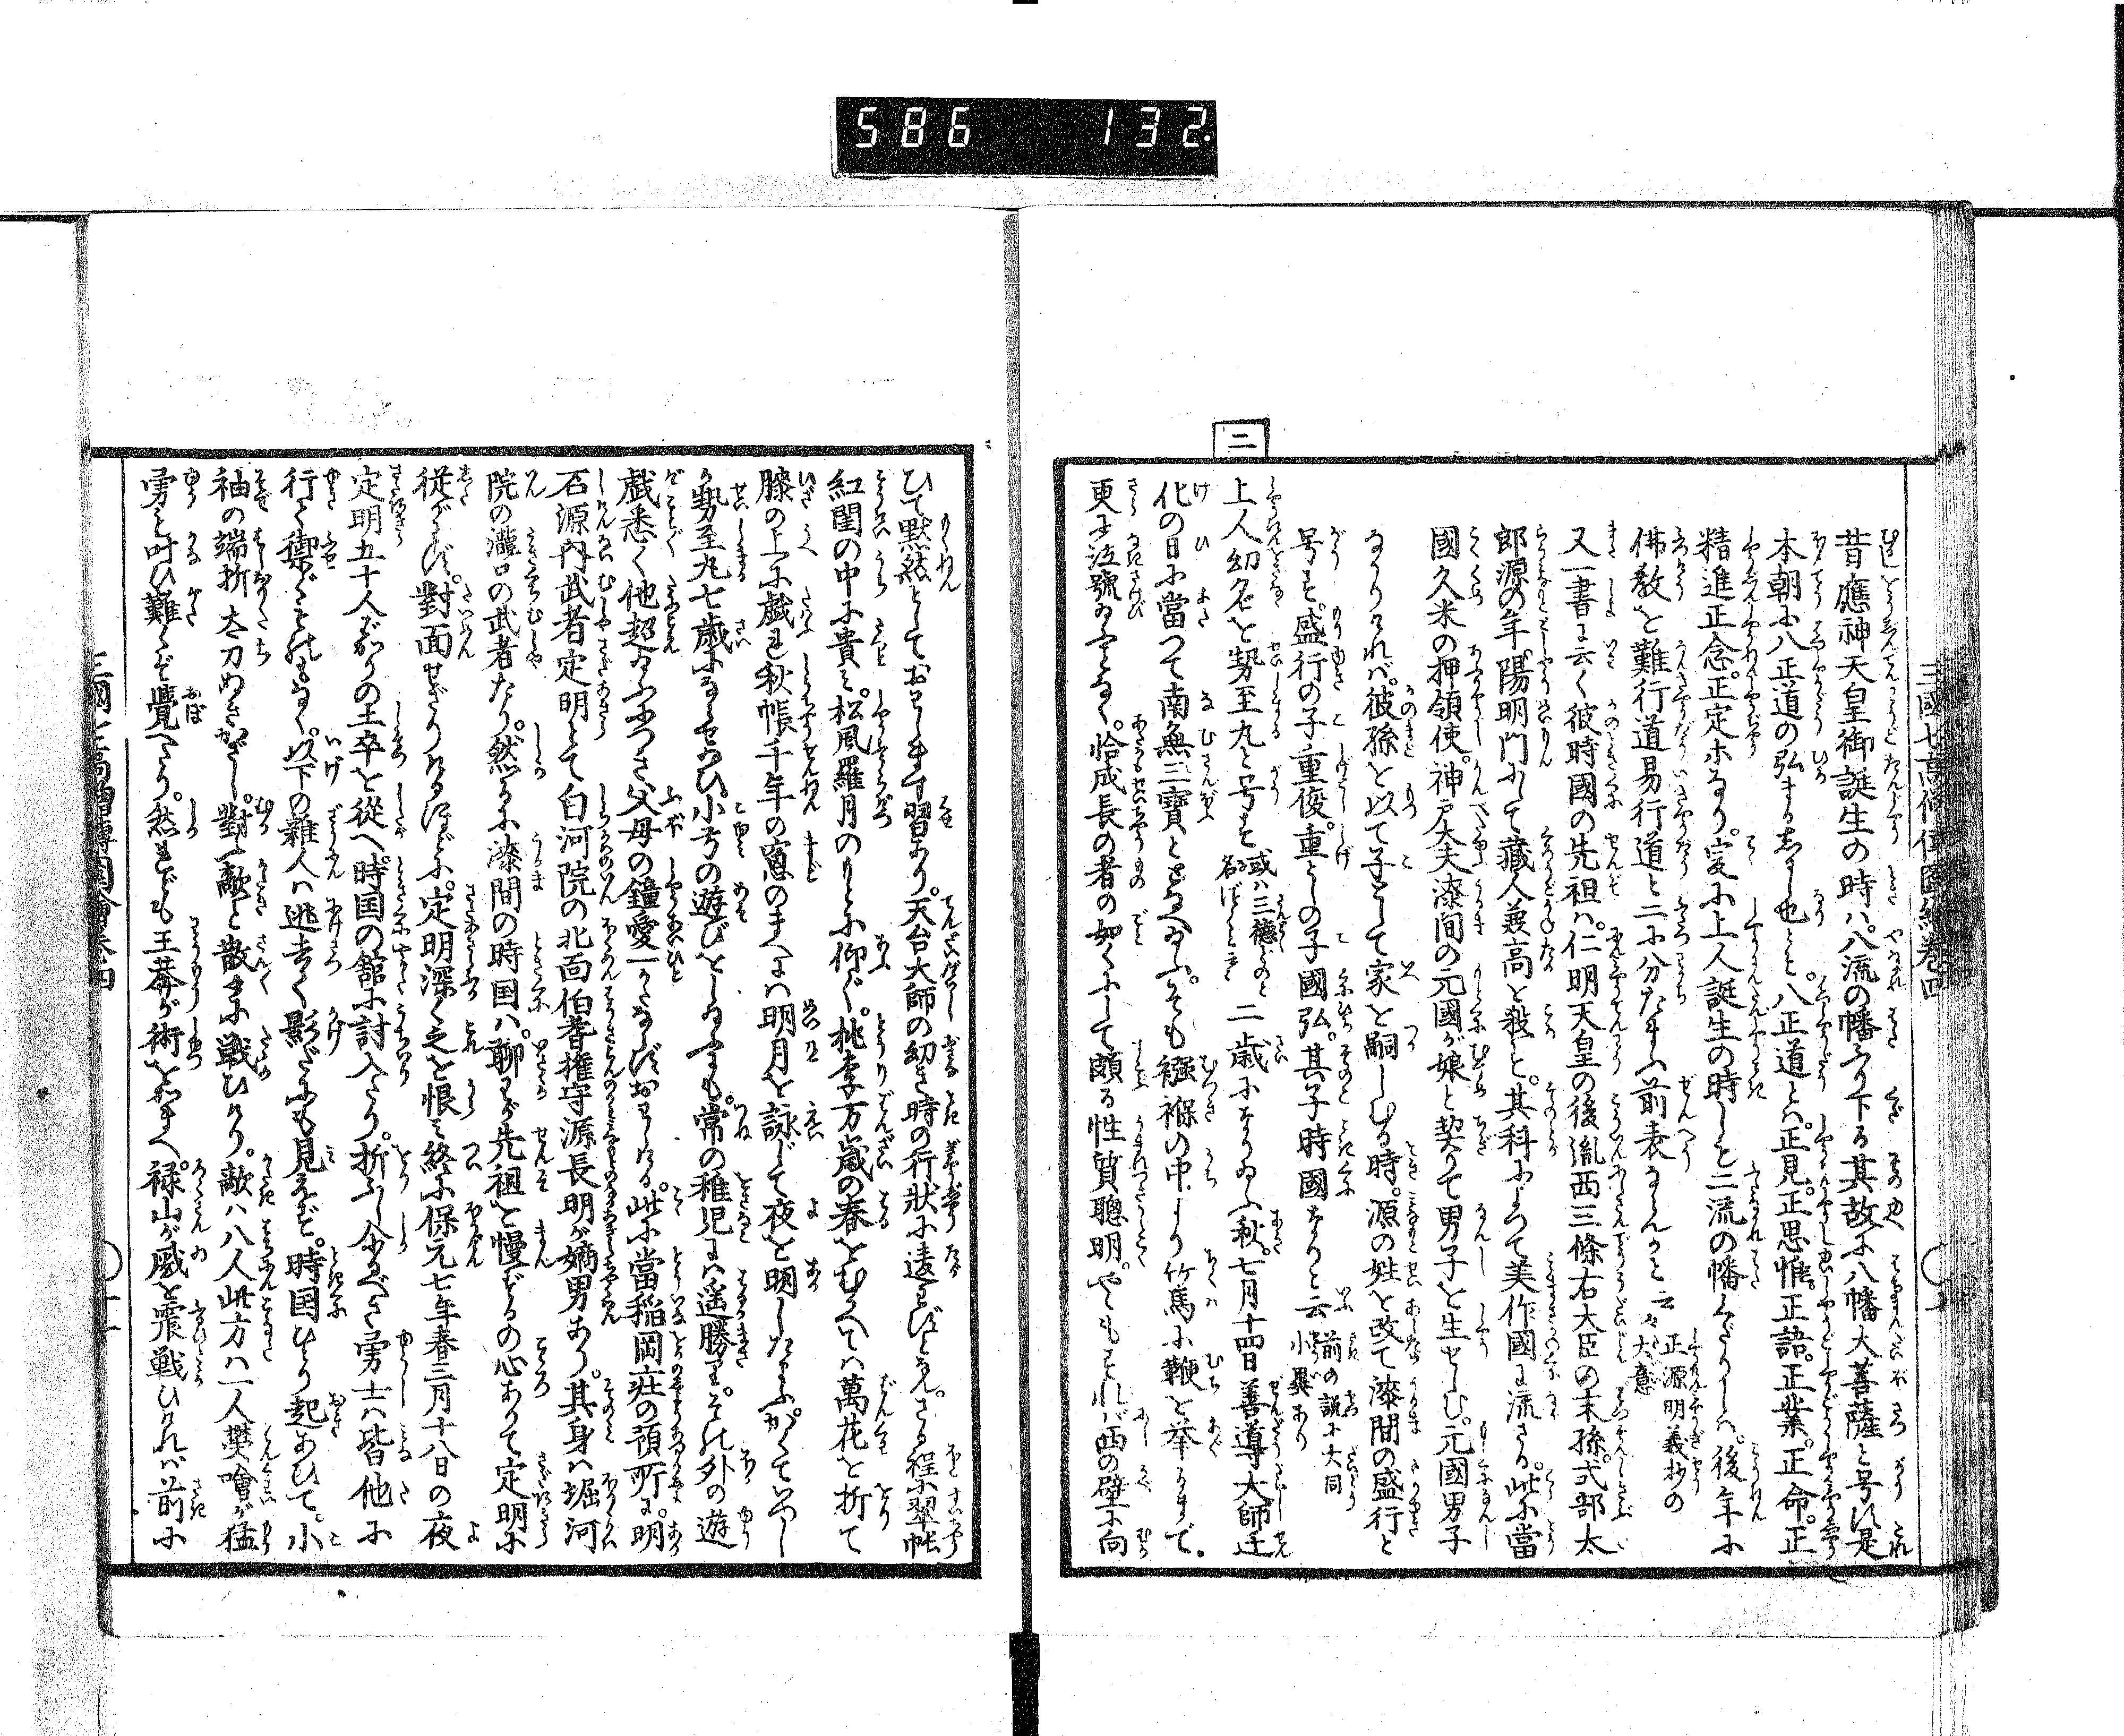 586 132
三國七高僧傳圖繪巻四
昔應神天皇御誕生の時ハ八流の幡ふり下る其故ハ八幡大菩薩と号は是
本朝に八正道の弘まる也とぞ。八正道とハ。正見。正思惟。正語。正業。正命。正
精進正念。正定なり。爰に上人誕生の時しも二流の幡くだりしハ。後年に
佛教を難行道易行道と二に分たまふ前表ならんかと云々 正源明義抄の大意
又一書に云く彼時國の先祖ハ。仁明天皇の後胤西三條右大臣の末孫。式部太
郎源の年。陽明門にて藏人兼高を殺と。其科によつて美作國に流さる。此に當
國久米の押領使。神戸大夫漆間の元國が娘と契りて男子を生せしむ。元國男子
なかりければ。彼孫を以て子として家を嗣しむる時。源の姓を改て漆間の盛行と
号す。盛行の子重俊。重としの子國弘。其子時國なりと云 前の説に大同小異あり
二
上人幼名を勢至丸と号す 或ハ三穂 二歳になりたまふ秋。七月十四日善導大師迁
化の日に當つて南無三寶ととなへたまふ。そも襁褓の中より竹馬に鞭を挙るまで。
更に泣號ふことなく。恰成長の者の如くにして頗る性質聰明。やゝもすれバ西の壁に向
ひて黙然としておはします習あり。天台大師の幼き時の行狀に違はずとなん。さる程に翠帳
紅閨の中に貴み。松風羅月のもとに仰ぐ。桃李万歳の春をむかへてハ萬花を折て
膝の上に戯れ秋帳千年の窓のまへにハ明月を詠じて夜を明したまふ。かくていつし
か勢至丸七歳にならせたまひ小弓の遊びをしたまふにも。常の稚児にハ遥勝れ。その外の遊
戯悉く他に超たまふにつき父母の鐘愛一かたならずおはしける。此に當稲岡の庄の預所に。明
石源内武者定明とて白河院の北面伯耆権守源長明が嫡男あり。其身ハ堀河
院の瀧口の武者たり。然るに漆間の時国ハ。聊わが先祖を慢ずるの心ありて定明に
従がはず。對面せざりけるほどに。定明深く之を恨み終に保元七年春三月十八日の夜
定明五十人ばかりの士卒を從へ。時国の舘に討入たり。折ふし今べき勇士ハ皆他に
行く禦ぐものもなく。以下の雜人ハ逃去く影だにも見えず。時国ひとり起あひて。小
袖の端折太刀ぬきかざし。對ふ敵と散々に戦ひけり。敵ハ八人此方ハ一人樊噲が猛
勇も叶ひ難くぞ覺へたり。然れども王莽が術をかまへ。禄山が威を震戦ひければ前に
三國七高僧傳圖繪巻四